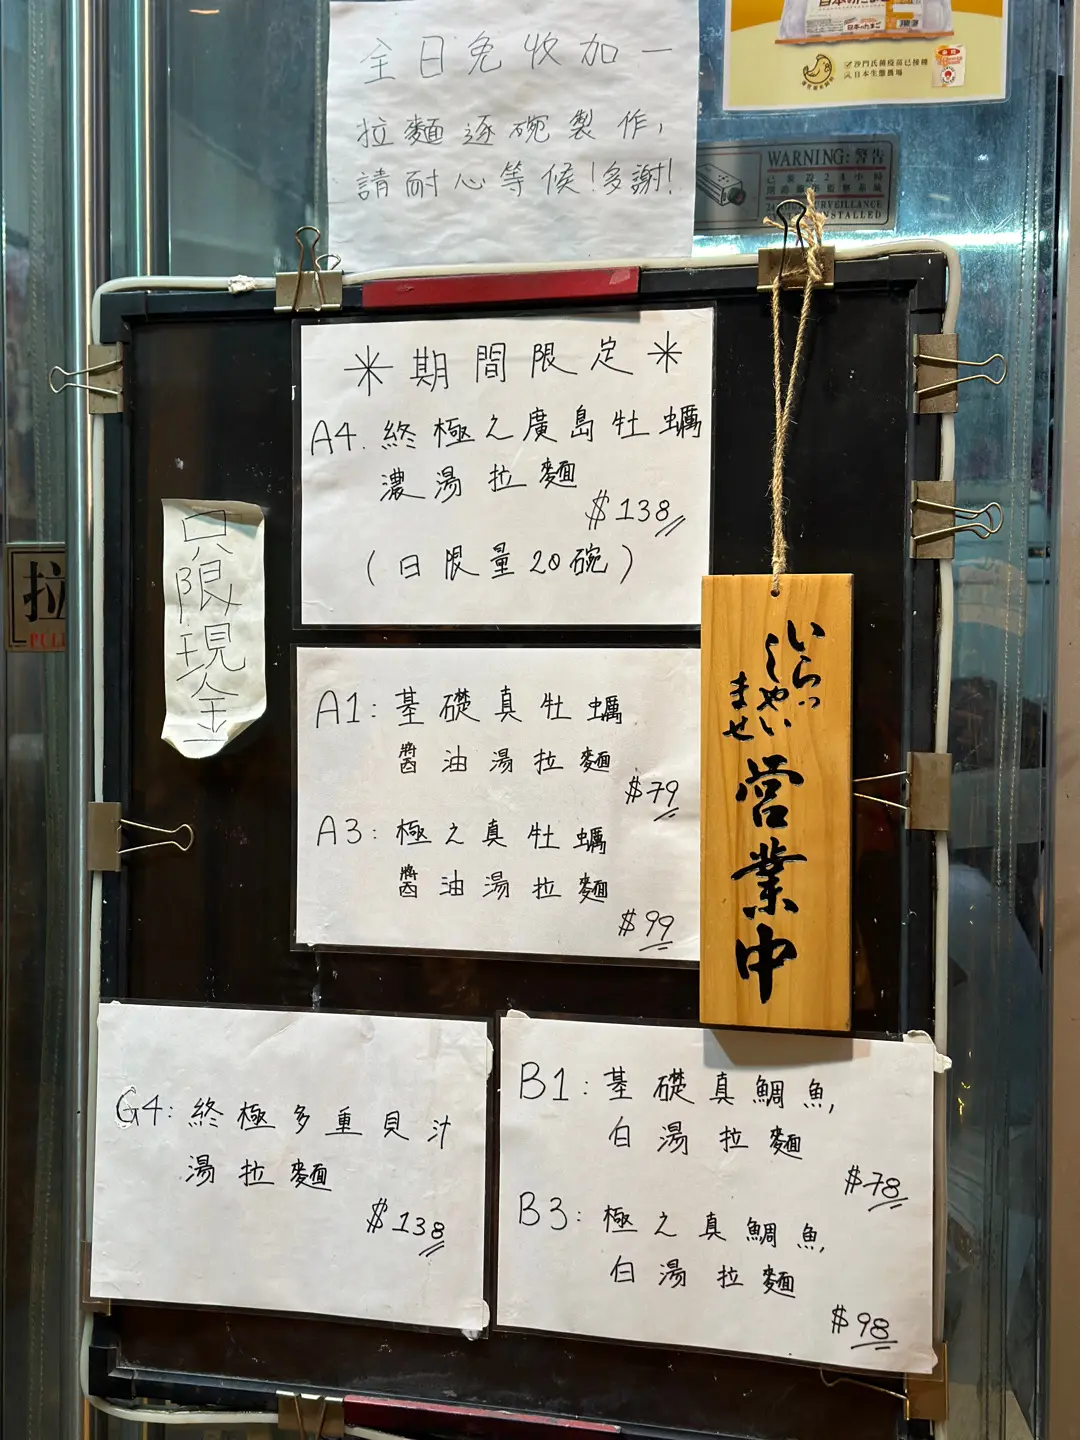 全日免收加一
拉麵逐碗製作,
請耐心等候!多謝!
日本のたまご
沙門氏菌疫苗已接種
日本生態農場
WARNING: 警告
已裝設24小時
24 HOUR SURVEILLANCE
INSTALLED
*期間限定*
A4. 終極之廣島牡蠣
濃湯拉麵
$138
(日限量20碗)
只限現金
拉
PULL
A1: 基礎真牡蠣
醬油湯拉麵
$79
A3: 極之真牡蠣
醬油湯拉麵
$99
いらっ
しゃい
ませ
営業中
G4: 終極多重貝汁
湯拉麵
$138
B1: 基礎真鯛魚,
白湯拉麵
$78
B3: 極之真鯛魚,
白湯拉麵
$98